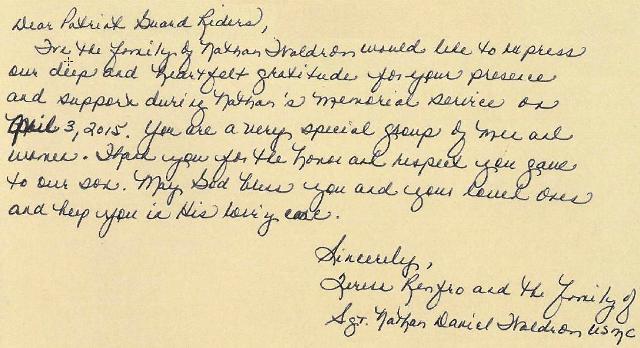 Dear Patriot Guard Riders,
We the family of Nathan Waldron would like to express
our deep and heartfelt gratitude for your presence
and support during Nathan's Memorial Service on
April 3, 2015. You are a very special group of men and
women. Thank you for the honor and respect you gave
to our son. May God bless you and your loved ones
and keep you in His loving care.
Sincerely,
Teresa Renfro and the family of
Sgt. Nathan Daniel Waldron USMC